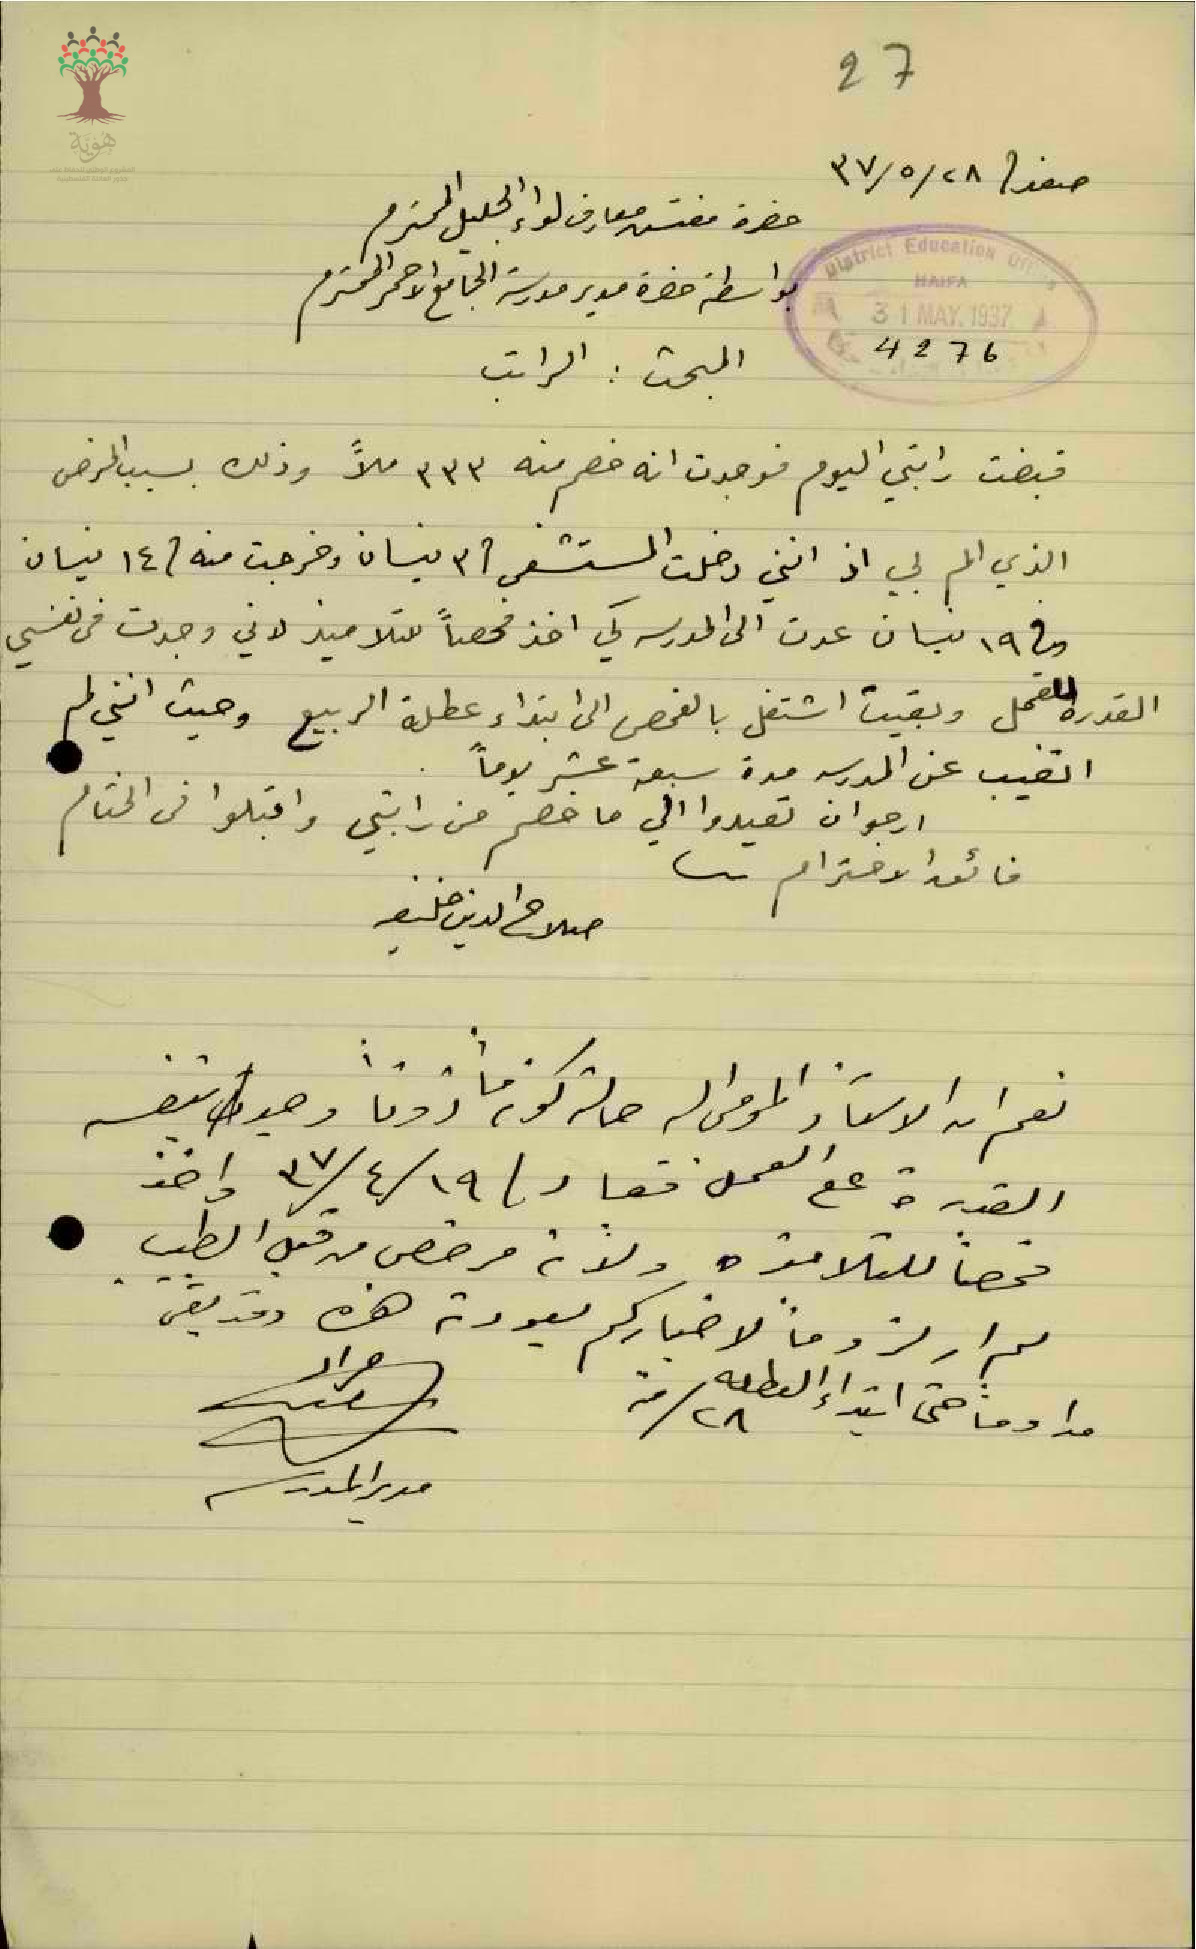 27
صفد في ٢٨/٥/٣٧
حضرة مفتش معارف لواء الجليل المحترم
بواسطة حضرة مدير مدرسة الجامع الاحمر المحترم
District Education Office
HAIFA
31 MAY. 1937
4276
المبحث : الراتب
قبضت راتبي اليوم فوجدت انه خصم منه ٣٣٣ ملاً وذلك بسبب المرض
الذي الم بي اذ انني دخلت المستشفى في ٣ نيسان وخرجت منه في ١٤ نيسان
وفي ١٩ نيسان عدت الى المدرسه كي اخذ فحصاً للتلاميذ لاني وجدت في نفسي
القدرة للعمل وبقيت اشتغل بالفحص الى ابتداء عطلة الربيع وحيث انني لم
اتغيب عن المدرسه مدة سبعة عشر يوماً
ارجو ان تعيدوا الي ما خصم من راتبي واقبلوا في الختام
فائق الاحترام
صلاح الدين خليفه
نعم ان الاستاذ المومى اليه حالة كونه مأذوناً وجد بنفسه
القدرة على العمل فعاد في ١٩/٤/٣٧ واخذ
فحصاً للتلامذه ولأنه مرخص من قبل الطبيب
لم ار لزوماً لاخباركم بعودته هذه وقد بقي
مداوماً حتى ابتداء العطله ٢٨/منه
مدير المدرسه
هوية